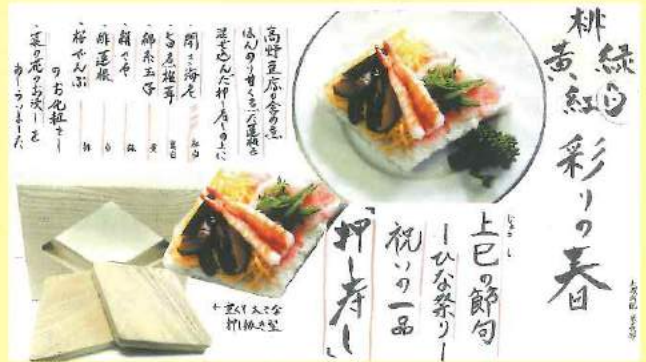 緑白
桃黄紅
彩りの春
上巳の節句
じょうし
ーひな祭りー
祝いの一品
「押し寿し」
高野豆腐の含め煮
ほんのり甘く煮た蓮根を
混ぜ込んだ押し寿しの上に
・開き海老 紅白
・旨煮椎茸 黒
・錦糸玉子 黄
・絹さや 緑
・酢蓮根 白
・桜でんぶ 桃
のお化粧をし
・菜の花のお浸しを
あしらいました
←
押し抜き型